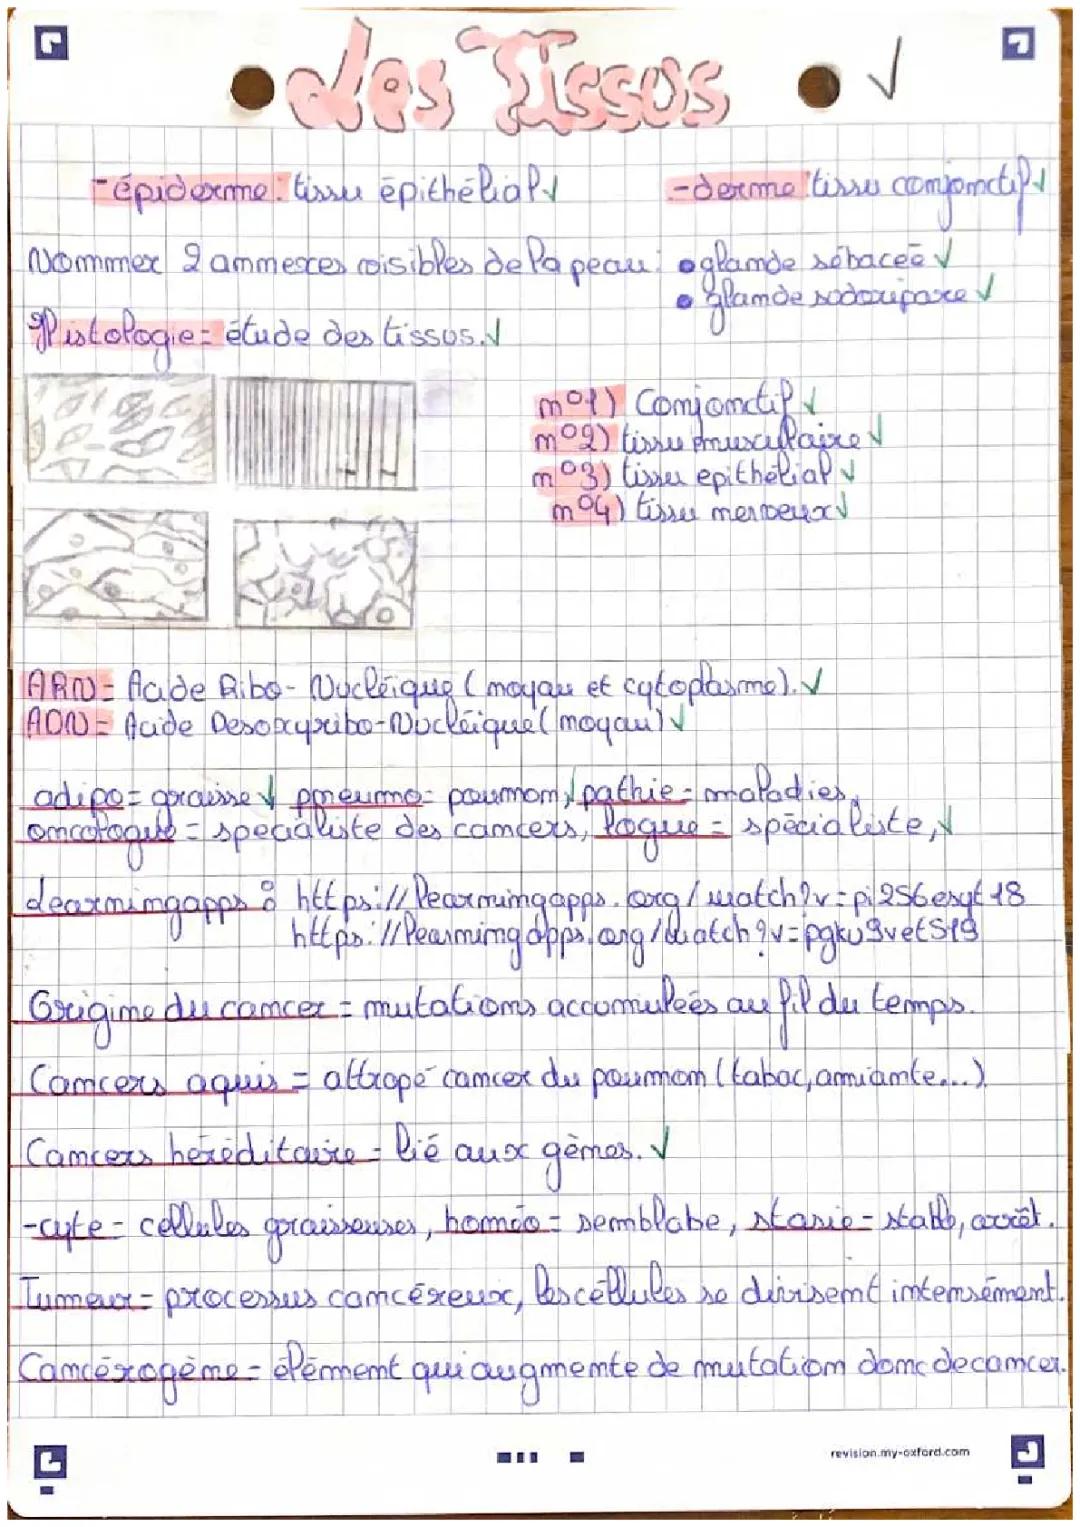 des Tissus ✓
-épiderme: tissu épithélial ✓ -derme: tissu conjonctif ✓
Nommer 2 annexes visibles de la peau: • glande sébacée ✓
• glande sudoripare ✓
Histologie = étude des tissus. ✓
n°1) Conjonctif ✓
n°2) tissu musculaire ✓
n°3) tissu epithélial ✓
n°4) tissu nerveux ✓
ARN = Acide Ribo-Nucléique (noyau et cytoplasme). ✓
ADN = Acide Desoxyribo-Nucléique (noyau) ✓
adipo = graisse ✓ pneumo = poumon, pathie = maladies,
oncologue = specialiste des cancers, logue = spécialiste, ✓
learningapps: https://learningapps.org/watch?v=pi256esyt18
https://learningapps.org/watch?v=pgku9vetS19
Origine du cancer = mutations accumulées au fil du temps.
Cancers aquis = attrapé cancer du poumon (tabac, amiante...)
Cancers héréditaire = lié aux gènes. ✓
-cyte = cellules graisseuses, homéo = semblabe, stasie = stabl, arrêt.
Tumeur = processus cancéreux, les céllules se divisent intensément.
Cancérogène = élément qui augmente de mutation donc de cancer.
revision.my-oxford.com